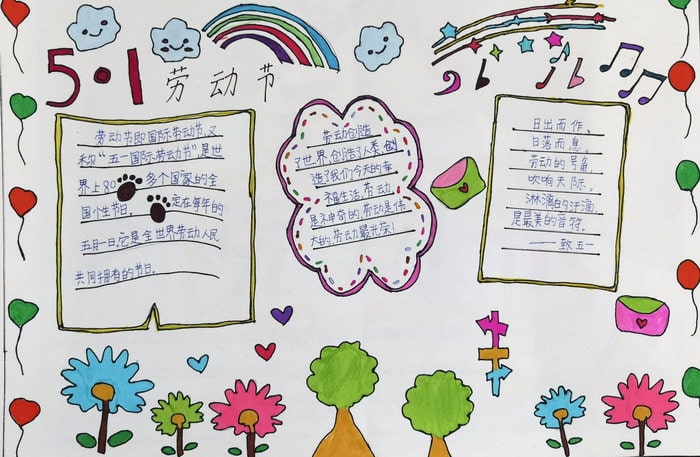 5·1 劳动节
劳动节即国际劳动节,又
称“五一国际劳动节”是世
界上80多个国家的全
国个生节日。定在每年的
五月一日,它是全世界劳动人民
共同拥有的节日。
劳动创造
了世界,创造了人类,创
造了我们今天的幸
福生活,劳动,
是不神奇的,劳动是伟
大的,劳动最光荣!
日出而作,
日落而息。
劳动的号角,
吹响天际。
淋漓的汗滴,
是最美的音符。
——致五一